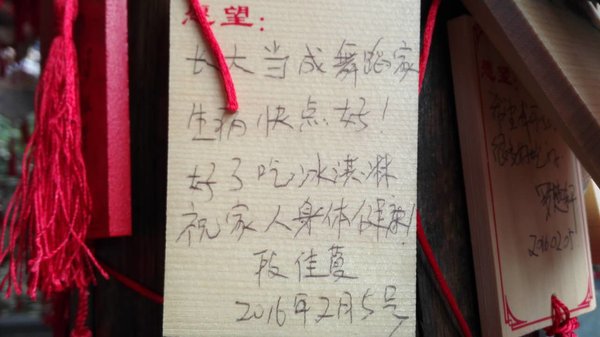 愿望：
长大当成舞蹈家
生病快点好！
好了吃冰淇淋
祝家人身体健康！
段佳蔓
2016年2月5号
愿望：
2016.02.05